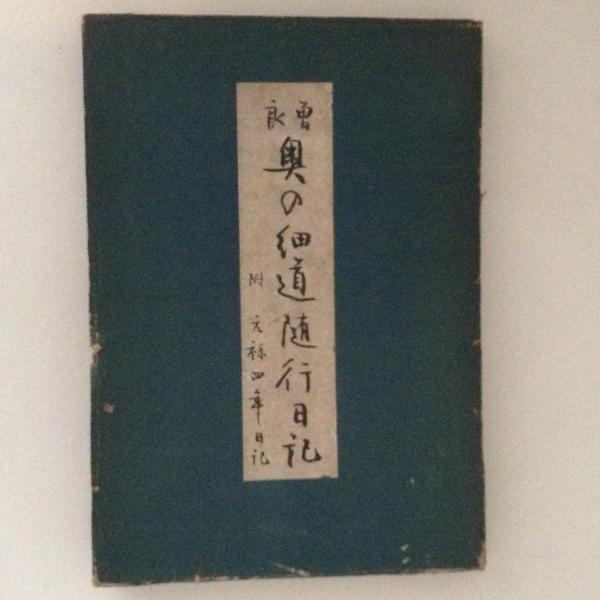 曽良
奥の細道随行日記
附 元禄四年日記